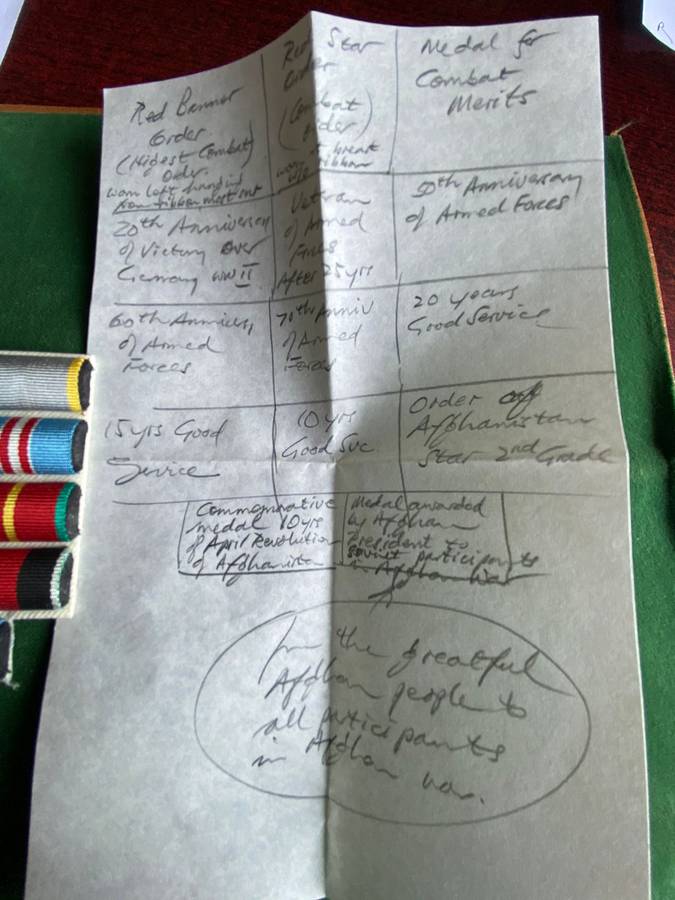 Red Banner
Order
(Highest Combat)
Order.
worn left
Red Star
Order
(Combat
Order)
breast
ribbon
Medal for
Combat
Merits
20th Anniversary
of Victory over
Germany WW II
Veteran
of Armed
Forces
After 25 yrs
50th Anniversary
of Armed Forces
60th Annivers,
of Armed
Forces
70th Anniv
of Armed
Forces
20 years
Good Service
15 yrs Good
Service
10 yrs
Good Svc
Order of
Afghanistan
Star 2nd Grade
Commemorative
medal 10 yrs
of April Revolution
of Afghanistan
Medal awarded
by Afghan
President to
Soviet participants
in Afghan War
the greatful
Afghan people to
all participants
in Afghan war.